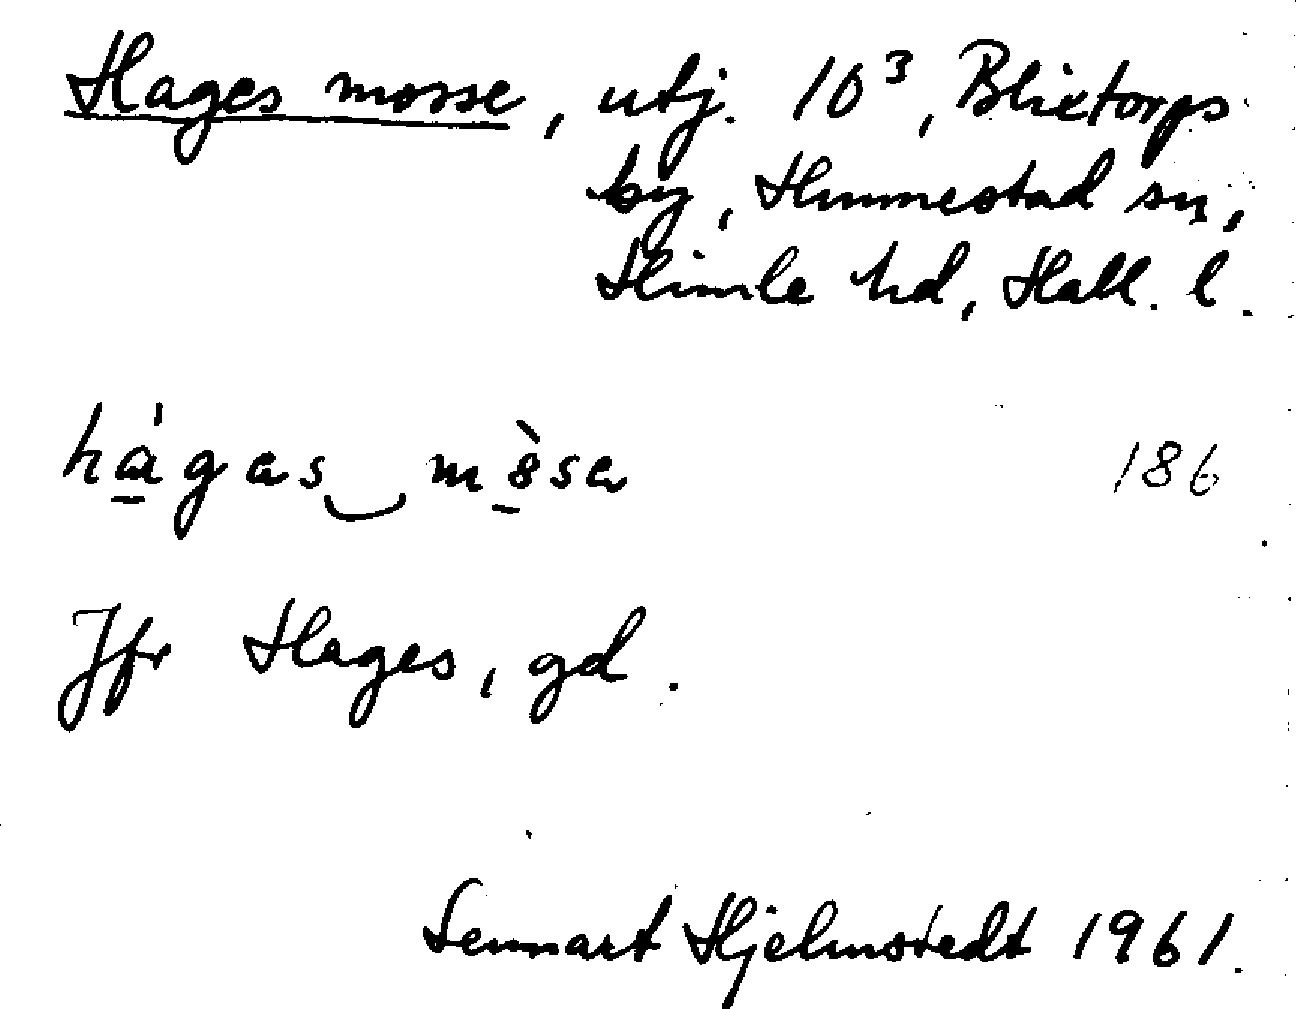 Hages mosse, utj. 10³, Blixtorps
by, Hunnestad sn,
Himle hd, Hall. l.
hágas mòsa 186
Jfr Hages, gd.
Lennart Hjelmstedt 1961.